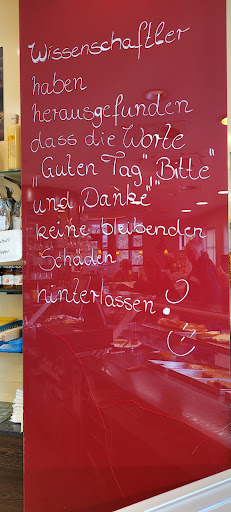 Wissenschaftler
haben
herausgefunden
dass die Worte
"Guten Tag", "Bitte"
"und Danke"
keine bleibenden
Schäden
hinterlassen!